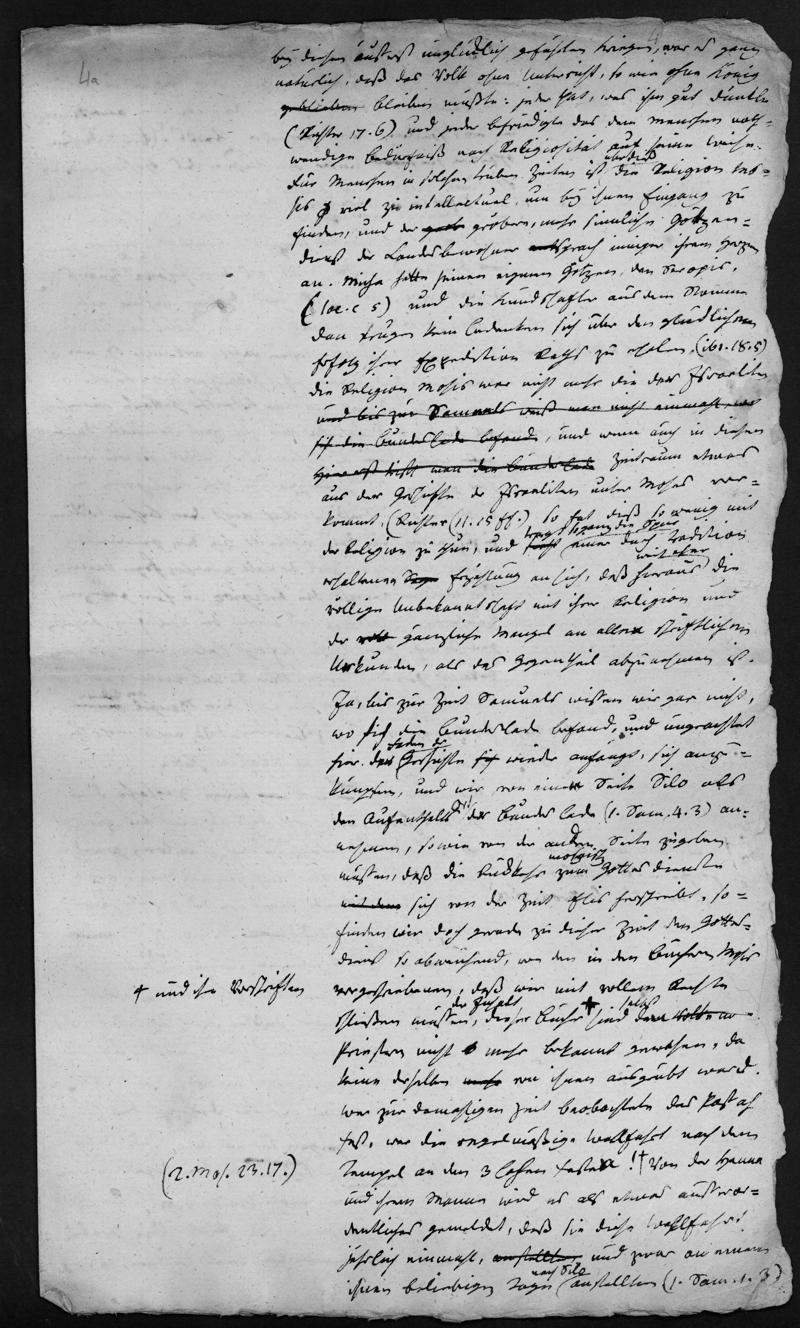 4a
bey diesen äusserst unglücklich geführten Kriegen, war es ganz
natürlich, daß das Volk ohne Unterricht, so wie ohne König
geblieben bleiben mußte: jeder that, was ihm gut dünkte
(Richter 17.6) und jeder befriedigte das dem Menschen noth-
wendige Bedürfniß nach Religiosität auf seine Weise.
Für Menschen in solchen trüben Zeiten ist überdieß die Religion Mo-
sis viel zu intellectuel, um bey ihnen Eingang zu
finden, und der gröbere, mehr sinnliche Götzen-
dienst der Landesbewohner sprach inniger ihrem Herzen
an. Micha hatte seinen eignen Götzen, den
(loc. c 5) und die Kundschafter aus dem Stamme
Dan trugen kein Bedenken sich über den glücklichen
Erfolg ihrer Expedition Raths zu erholen, (ib. 18.5)
die Religion Mosis war nicht mehr die der Israeliten
und bis zur Samuels weiß man nicht einmahl, wo
sich die Bundeslade befand, und wenn auch in diesem
die Bundeslade Zeitraum etwas
aus der Geschichte der Israeliten unter Moses vor-
kommt, (Richter (11.15 ff.), so hat dieß so wenig mit
der Religion zu thun, und trägt so ganz die Spur einer durch Tradition
erhaltenen Sage Erzählung an sich, daß weit eher hieraus die
völlige Unbekanntschaft mit ihrer Religion und
der gänzliche Mangel an allen schriftlichen
Urkunden, als das Gegentheil abzunehmen ist.
Ja, bis zur Zeit Samuels wissen wir gar nicht,
wo sich die Bundeslade befand, und ungeachtet
hier der Faden der Geschichte sich wieder anfängt, sich anzu-
knüpfen, und wir von einer Seite Silo als
den Aufenthalt der Bundes lade (1. Sam. 4.3) an-
nehmen, so wie von der andern Seite zugeben
müssen, daß die Rückkehr zum mosaisch Gottes dienste
mit dem sich von der Zeit Elis herschreibt, so-
finden wir doch gerade zu dieser Zeit den Gottes-
dienst so abweichend, von den in den Büchern Mosis
vorgeschriebenen, daß wir mit vollem Rechte
+ und ihre Vorschriften
schließen müssen, der Inhalt dieser Bücher + sind selbst den
Priestern nicht mehr bekannt gewesen, da
keine derselben mehr von ihnen ausgeübt ward.
Wer zur damahligen Zeit beobachtete das Passah
fest, wer die regelmäßige Wallfahrt nach dem
(2. Mos. 23.17.)
Tempel an den 3 hohen Festen! † Von der Hanna
und ihrem Manne wird es als etwas ausseror-
dentliches gemeldet, daß sie diese Wallfahrt
jährlich einmahl, anstellten, und zwar an einem
ihnen beliebigen Tage nach Silo anstellten (1. Sam. 1.3)